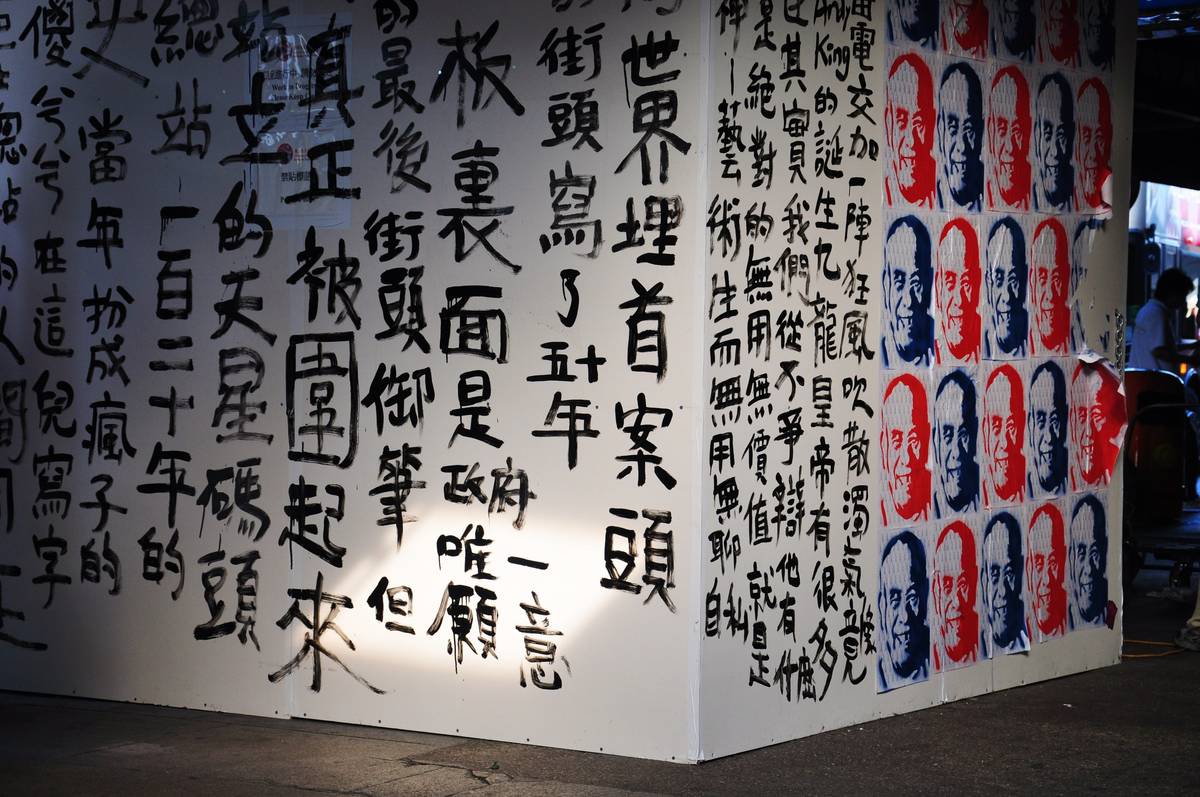 雷電交加一陣狂風吹散濁氣
King的誕生九龍皇帝有很多
其實我們從不爭辯他有什麼
是絕對的無用無價值就是
神一藝術性而無用無聊自私
世界埋首案頭
街頭寫了五十年
板裏面是政府唯願
一意
的最後街頭御筆但
真正被圍起來
站立的天星碼頭
總站一百二十年的
當年扮成瘋子的
傻兮兮在這兒寫字
總站的人間